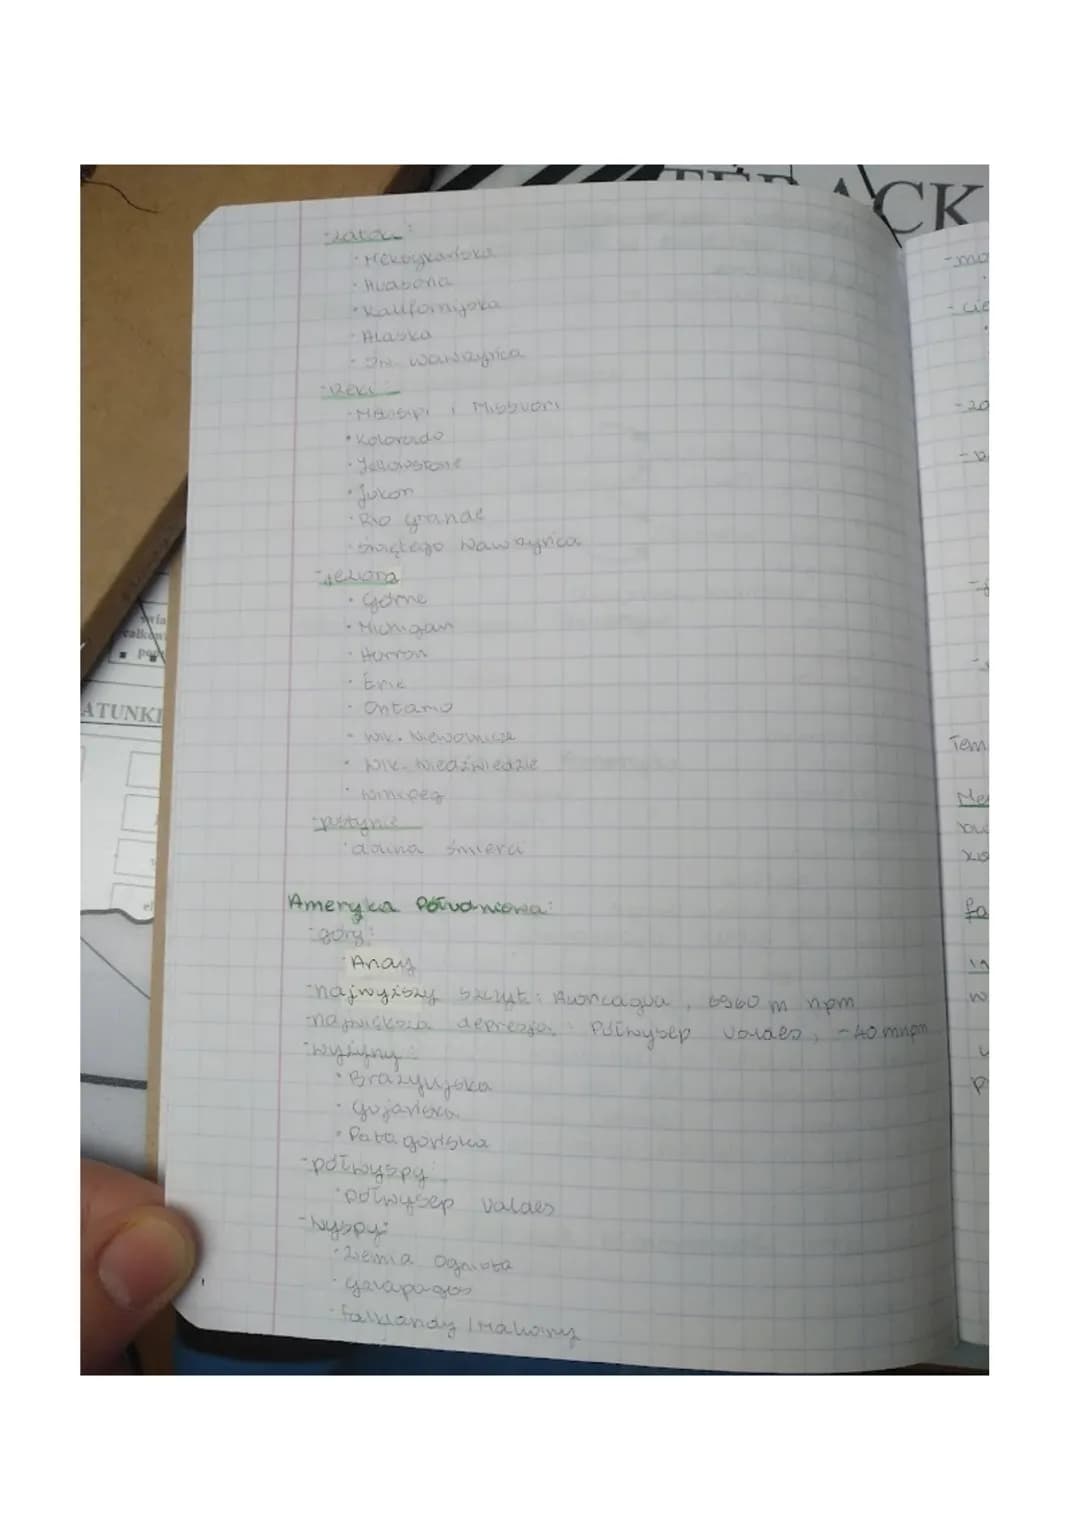 TERACK
-zatoki:
· Meksykańska
· Hudsona
· Kalifornijska
· Alaska
· Św. Wawrzyńca
-rzeki:
· Missisipi i Missouri
· Kolorado
· Yellowstone
· Jukon
· Rio grande
· świętego Wawrzyńca
-jeziora
· górne
· Michigan
· Huron
· Erie
· Ontario
· Wlk. Niewolnicze
· Wlk. Niedźwiedzie
· Winnipeg
-pustynie
· dolina śmierci
Ameryka Południowa:
-góry:
· Andy
-najwyższy szczyt: Aconcagua, 6960 m npm
-największa depresja: Półwysep Valdes, -40 mnpm
-wyżyny:
· Brazylijska
· Gujańska
· Patagońska
-półwyspy:
· półwysep Valdes
-wyspy:
· Ziemia Ognista
· Galapagos
· Falklandy / Malwiny
ATUNKI
-mo
-cie
-za
Tem